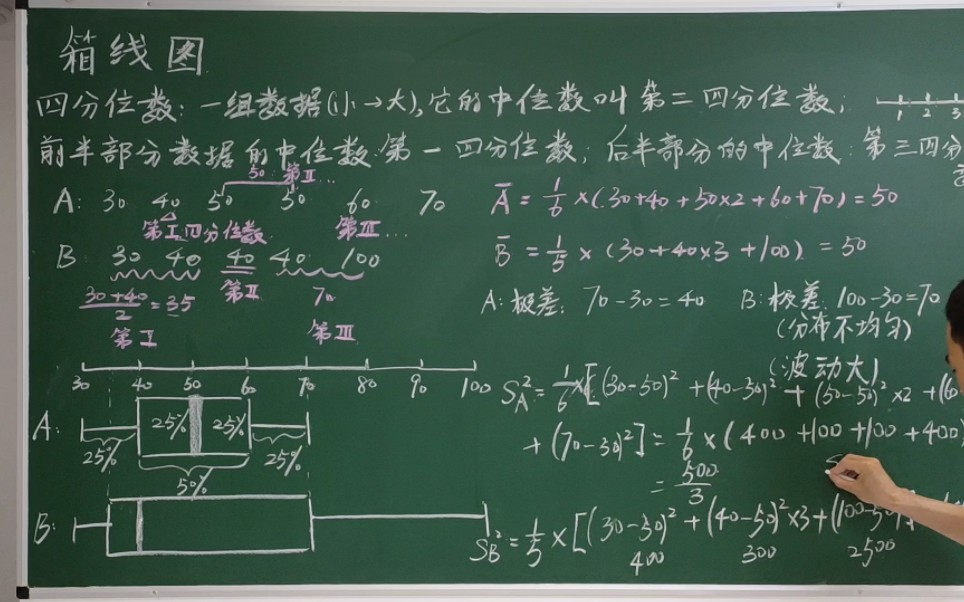 箱线图
四分位数:一组数据(小→大),它的中位数叫第二四分位数;
1 2 3
前半部分数据的中位数:第一四分位数;后半部分的中位数:第三四分
50 第Ⅱ...
A: 30 40 50 50 60 70
第Ⅰ四分位数 第Ⅲ...
Ā = 1/6 ×(30+40+50×2+60+70) = 50
B 30 40 40 40 100
(30+40)/2 = 35 第Ⅱ 70
第Ⅰ 第Ⅲ
B̄ = 1/5 × (30+40×3+100) = 50
A:极差: 70-30=40 B:极差: 100-30=70
(分布不均匀)
(波动大)
30 40 50 60 70 80 90 100
A: 25% 25%
25% 25%
50%
B:
S_A² = 1/6 ×[(30-50)² + (40-50)² + (50-50)²×2 + (60
+ (70-50)²] = 1/6 × (400 +100 +100 +400)
= 500/3
S_B² = 1/5 × [(30-50)² + (40-50)²×3+(100-50)²]
400 300 2500